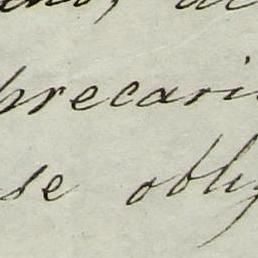 precari
se oblig